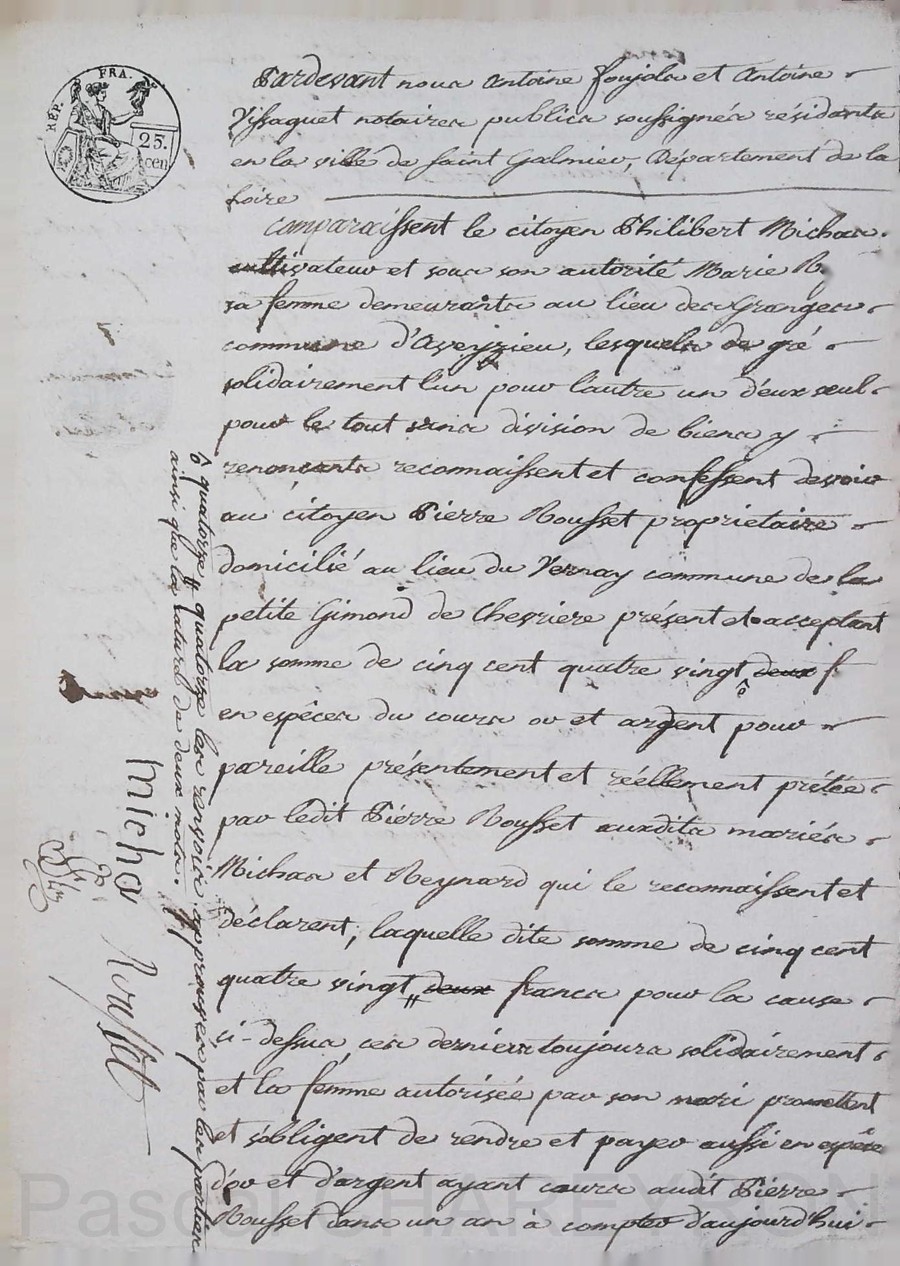 RÉP. FRA.
25.
cen
Pardevant nous Antoine foujols et Antoine
Vissaguet notaires publics soussignés résidants
en la ville de saint Galmier, Département de la
Loire
Comparaissent le citoyen Philibert Michas
cultivateur et sous son autorité Marie R
sa femme demeurants au lieu des Granges
commune d'Aveyzieu, lesquels de gré
solidairement l'un pour l'autre un d'eux seul
pour le tout sans division de biens y
renonçants reconnaissent et confessent devoir
au citoyen Pierre Rousset proprietaire
domicilié au lieu du Vernay commune de la
petite Gimond de Chevriere présent et acceptant
la somme de cinq cent quatre vingt deux f
en espéces du cours or et argent pour
pareille présentement et réellement prétée
par ledit Pierre Rousset auxdits mariés
Michas et Reynard qui le reconnaissent et
déclarent, laquelle dite somme de cinq cent
quatre vingt deux francs pour la cause
ci-dessus ces derniers toujours solidairement
et la femme autorisée par son mari promettent
et s'obligent de rendre et payer aussi en espéce
d'or et d'argent ayant cours audit Pierre
Rousset dans un an à compter d'aujourd'hui
ô quatorze # quatorze les renvois approuvés par les parties
ainsi que la rature de deux mots.
micha
Rousset
Pascal CHAREYRON